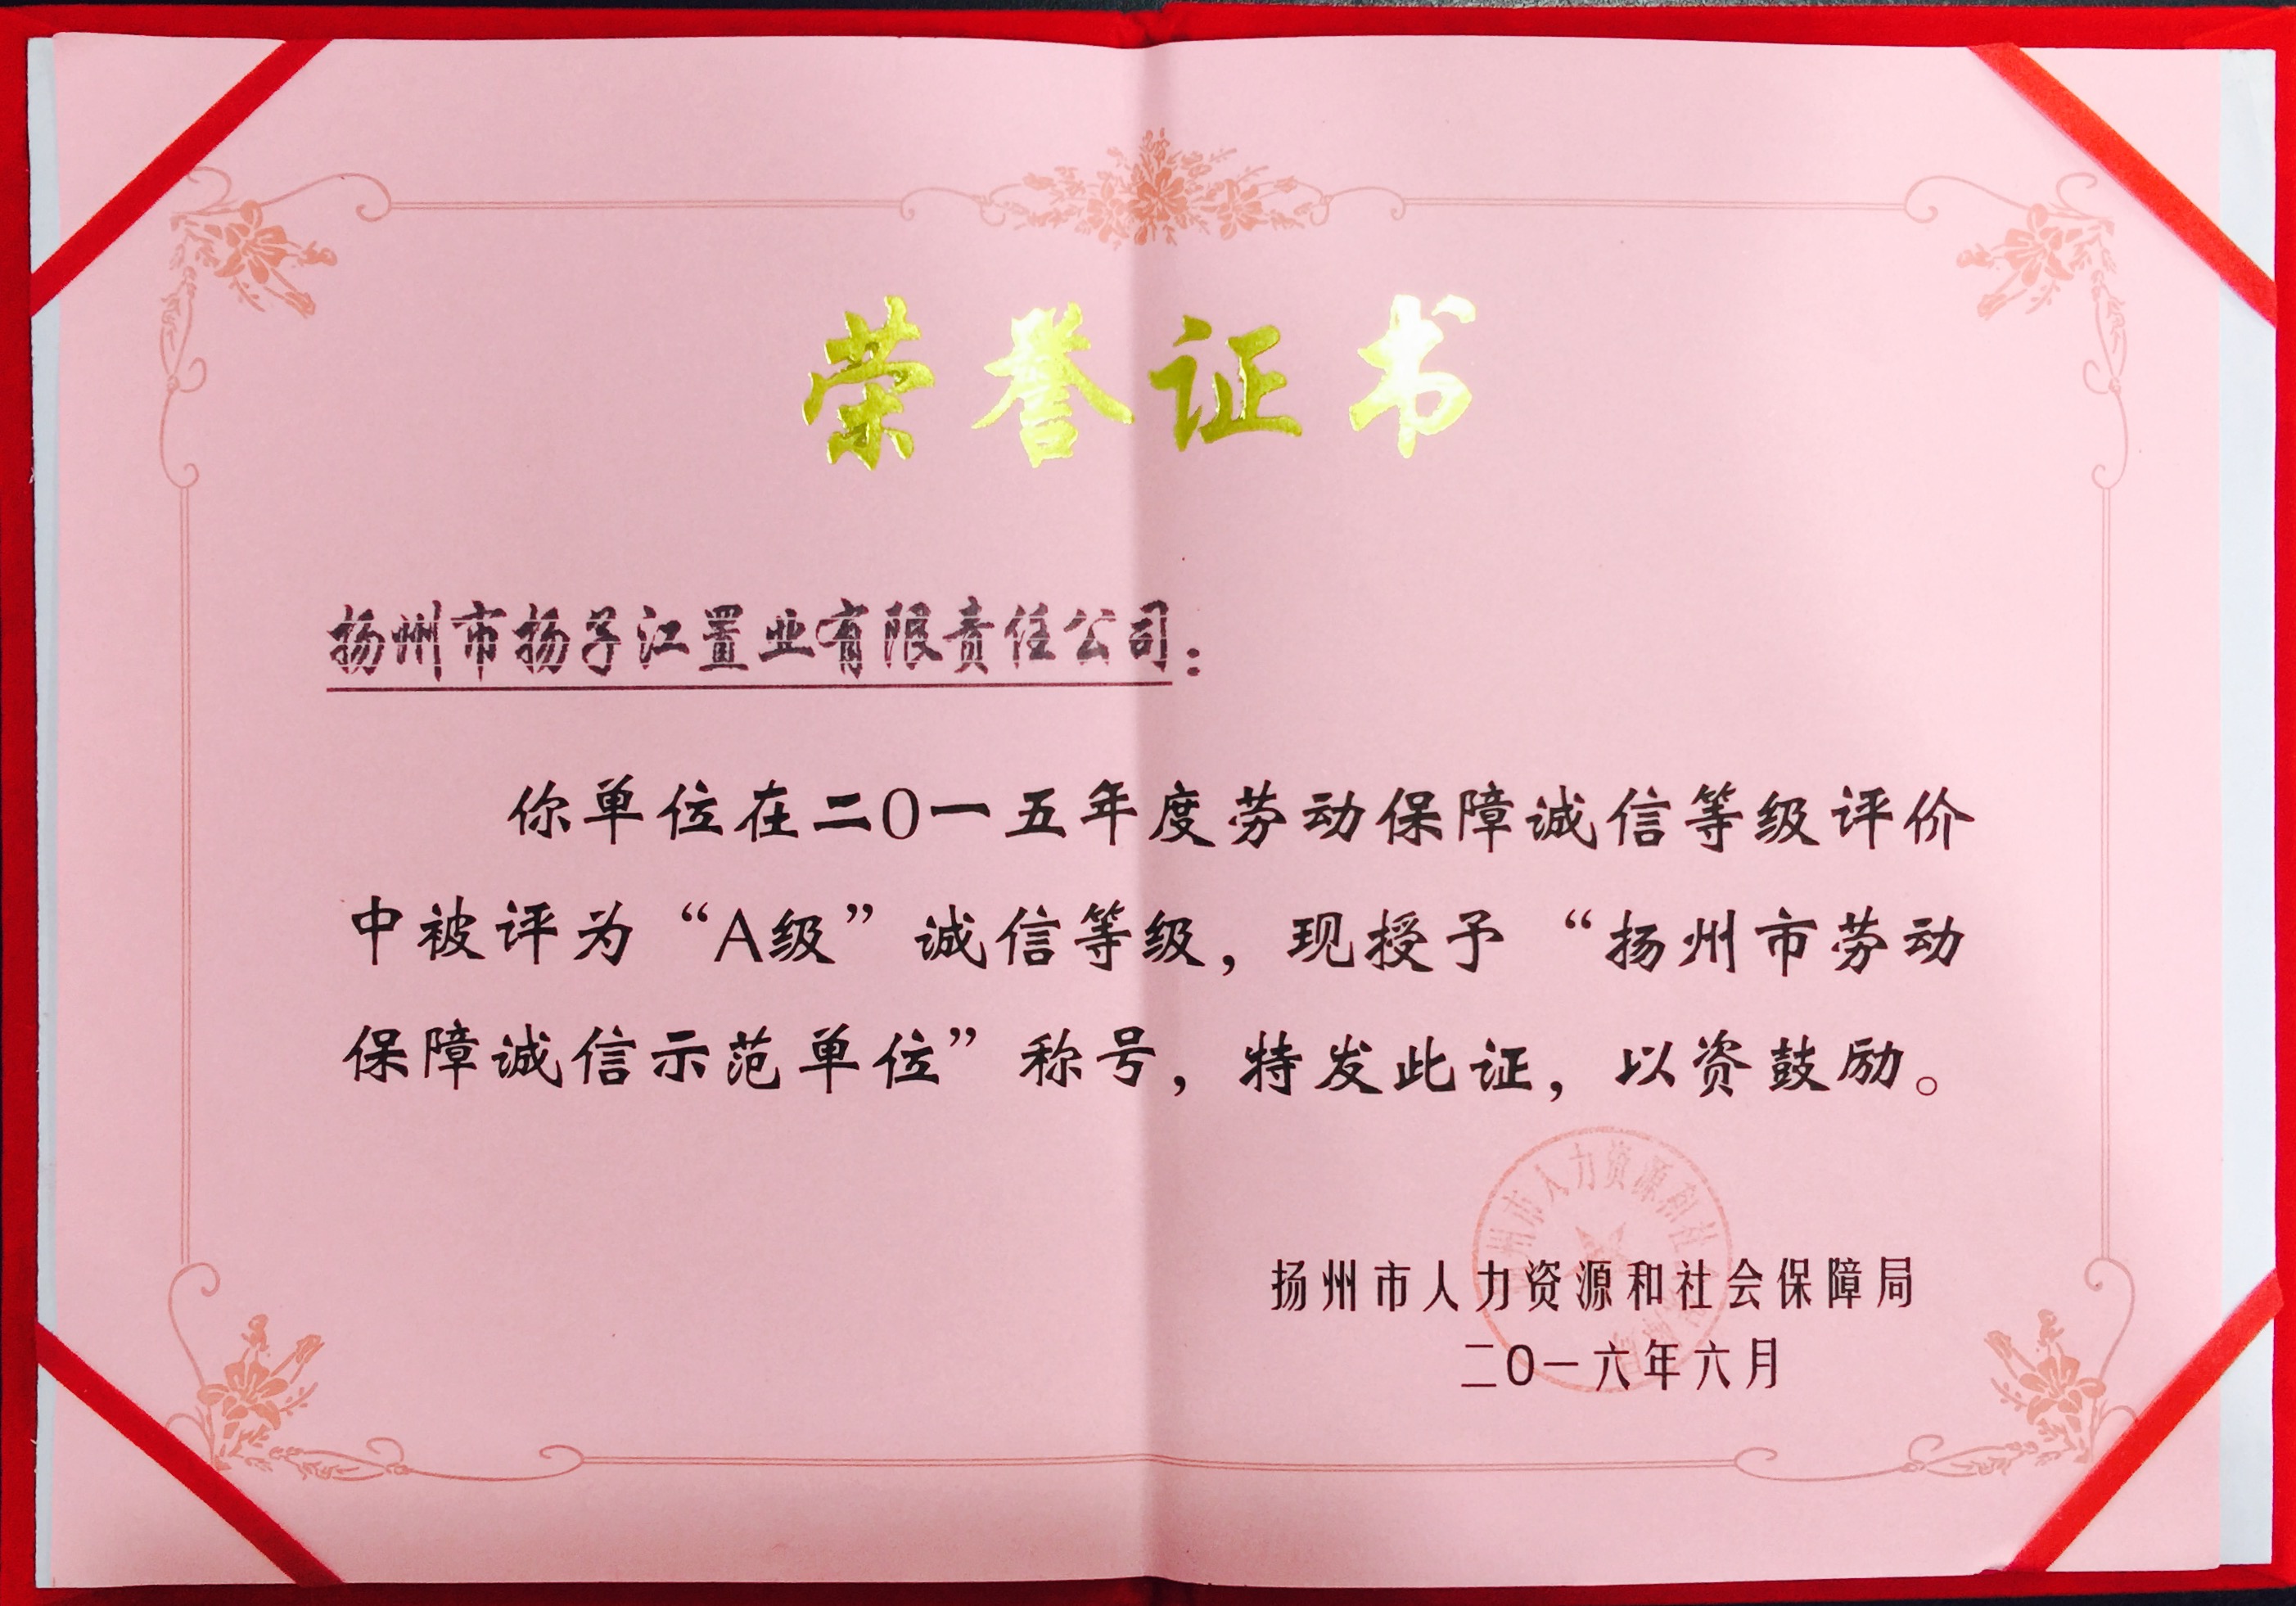 荣誉证书
扬州市扬子江置业有限责任公司：
你单位在二O一五年度劳动保障诚信等级评价
中被评为“A级”诚信等级，现授予“扬州市劳动
保障诚信示范单位”称号，特发此证，以资鼓励。
扬州市人力资源和社会保障局
二O一六年六月
州市人力资源和社